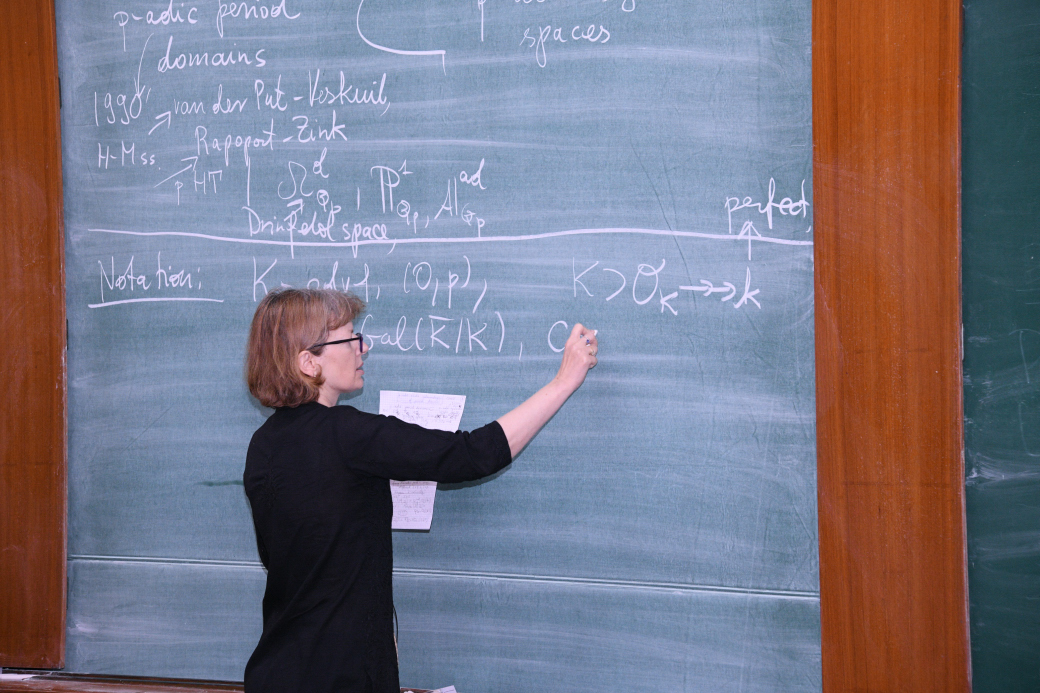 p-adic period
domains
spaces
1990, van der Put - Voskuil,
H-Mss. Rapoport - Zink
p HT
Ω^d_{Q_p}, P^1_{Q_p}, A^{ad}_{Q_p}
Drinfeld space,
perfect,
Notation: K - cdvf, (0,p), K ⊃ O_K ↠ k
Gal(K̄/K), C